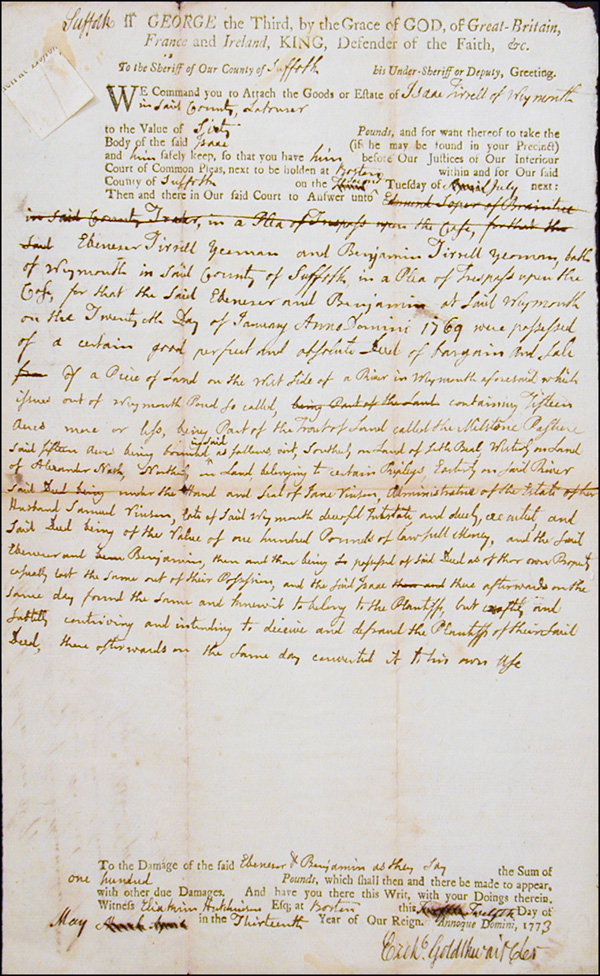 Suffolk ſſ GEORGE the Third, by the Grace of GOD, of Great-Britain,
France and Ireland, KING, Defender of the Faith, &c.
To the Sheriff of Our County of Suffolk his Under-Sheriff or Deputy, Greeting.
WE Command you to Attach the Goods or Eſtate of Isaac Tirrell of Weymouth
in said County, Labourer
to the Value of Sixty Pounds, and for want thereof to take the
Body of the ſaid Isaac (if he may be found in your Precinct)
and him ſafely keep, ſo that you have him before Our Juſtices of Our Inferiour
Court of Common Pleas, next to be holden at Boston within and for Our ſaid
County of Suffolk on the Tuesday of July next:
Then and there in Our ſaid Court to Anſwer unto Edmund Soper of Braintree
in said County Trader, in a Plea of Trespass upon the Case, for that the
said Ebenezer Tirrell Yeoman and Benjamin Tirrell Yeoman, both
of Weymouth in said County of Suffolk, in a Plea of Trespass upon the
Case, for that the said Ebenezer and Benjamin at said Weymouth
on the Twentieth Day of January Anno Domini 1769 were possessed
of a certain good perfect and absolute Deed of bargain and Sale
of a Piece of Land on the West Side of a River in Weymouth aforesaid which
issues out of Weymouth Pond so called, being Part of the Land containing Fifteen
Acres more or less, being Part of the Tract of Land called the Millstone Pasture
said fifteen Acres being bounded as follows, vizt, Southerly on Land of Seth Beal Westerly on Land
of Alexander Nash, Northerly in Land belonging to certain Easterly on said River
said Deed being under the Hand and Seal of Jane Vinson, Administratrix of the Estate of her
Husband Samuel Vinson, late of said Weymouth deceased Intestate, and duely executed, and
said Deed being of the Value of one hundred Pounds of lawfull Money, and the said
Ebenezer and Benjamin, then and there being so possessed of said Deed as of their own Property
casually lost the same out of their Possession, and the said Isaac there afterwards on the
same day found the same and knew it to belong to the Plantiffs, but craftily and
subtlely contriving and intending to deceive and defraud the Plantiffs of their said
Deed, there afterwards on the same day converted it to his own Use
To the Damage of the ſaid Ebenezer & Benjamin as they say the Sum of
one hundred Pounds, which ſhall then and there be made to appear,
with other due Damages. And have you there this Writ, with your Doings therein.
Witneſs Eliakim Hutchinson Eſq; at Boston this Twelfth Day of
May in the Thirteenth Year of Our Reign. Annoque Domini, 1773
Ezekl. Goldthwait Cler